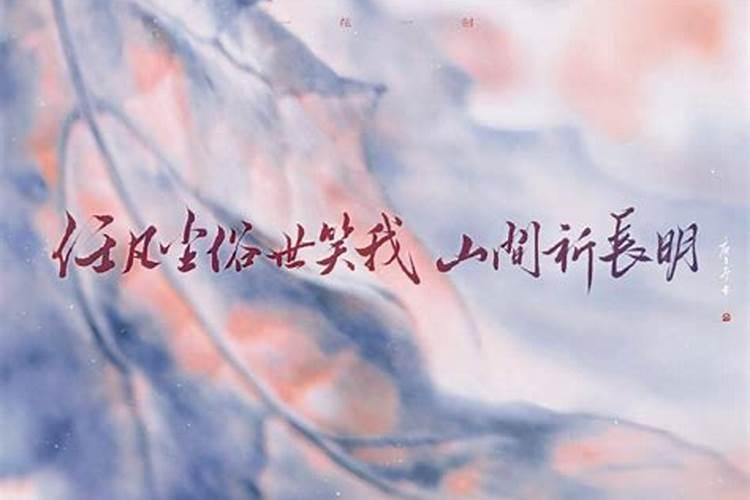 一花一创
任风尘俗世笑我 山間祈長明